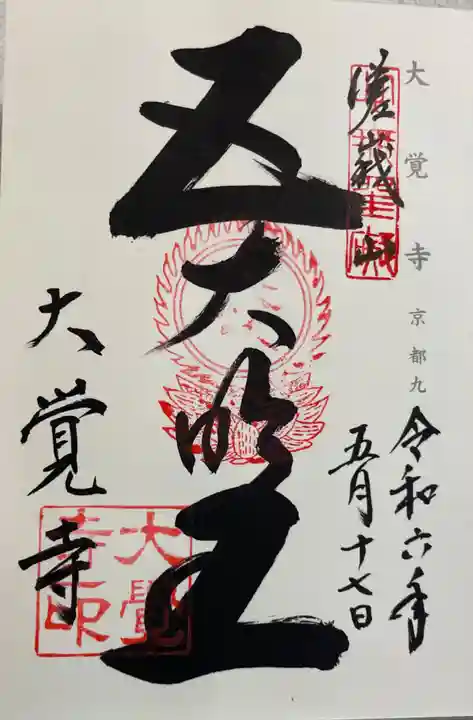 大覚寺 京都九
令和六年
五月十七日
嵯峨山
五大明王
大覚寺
大覺
寺印